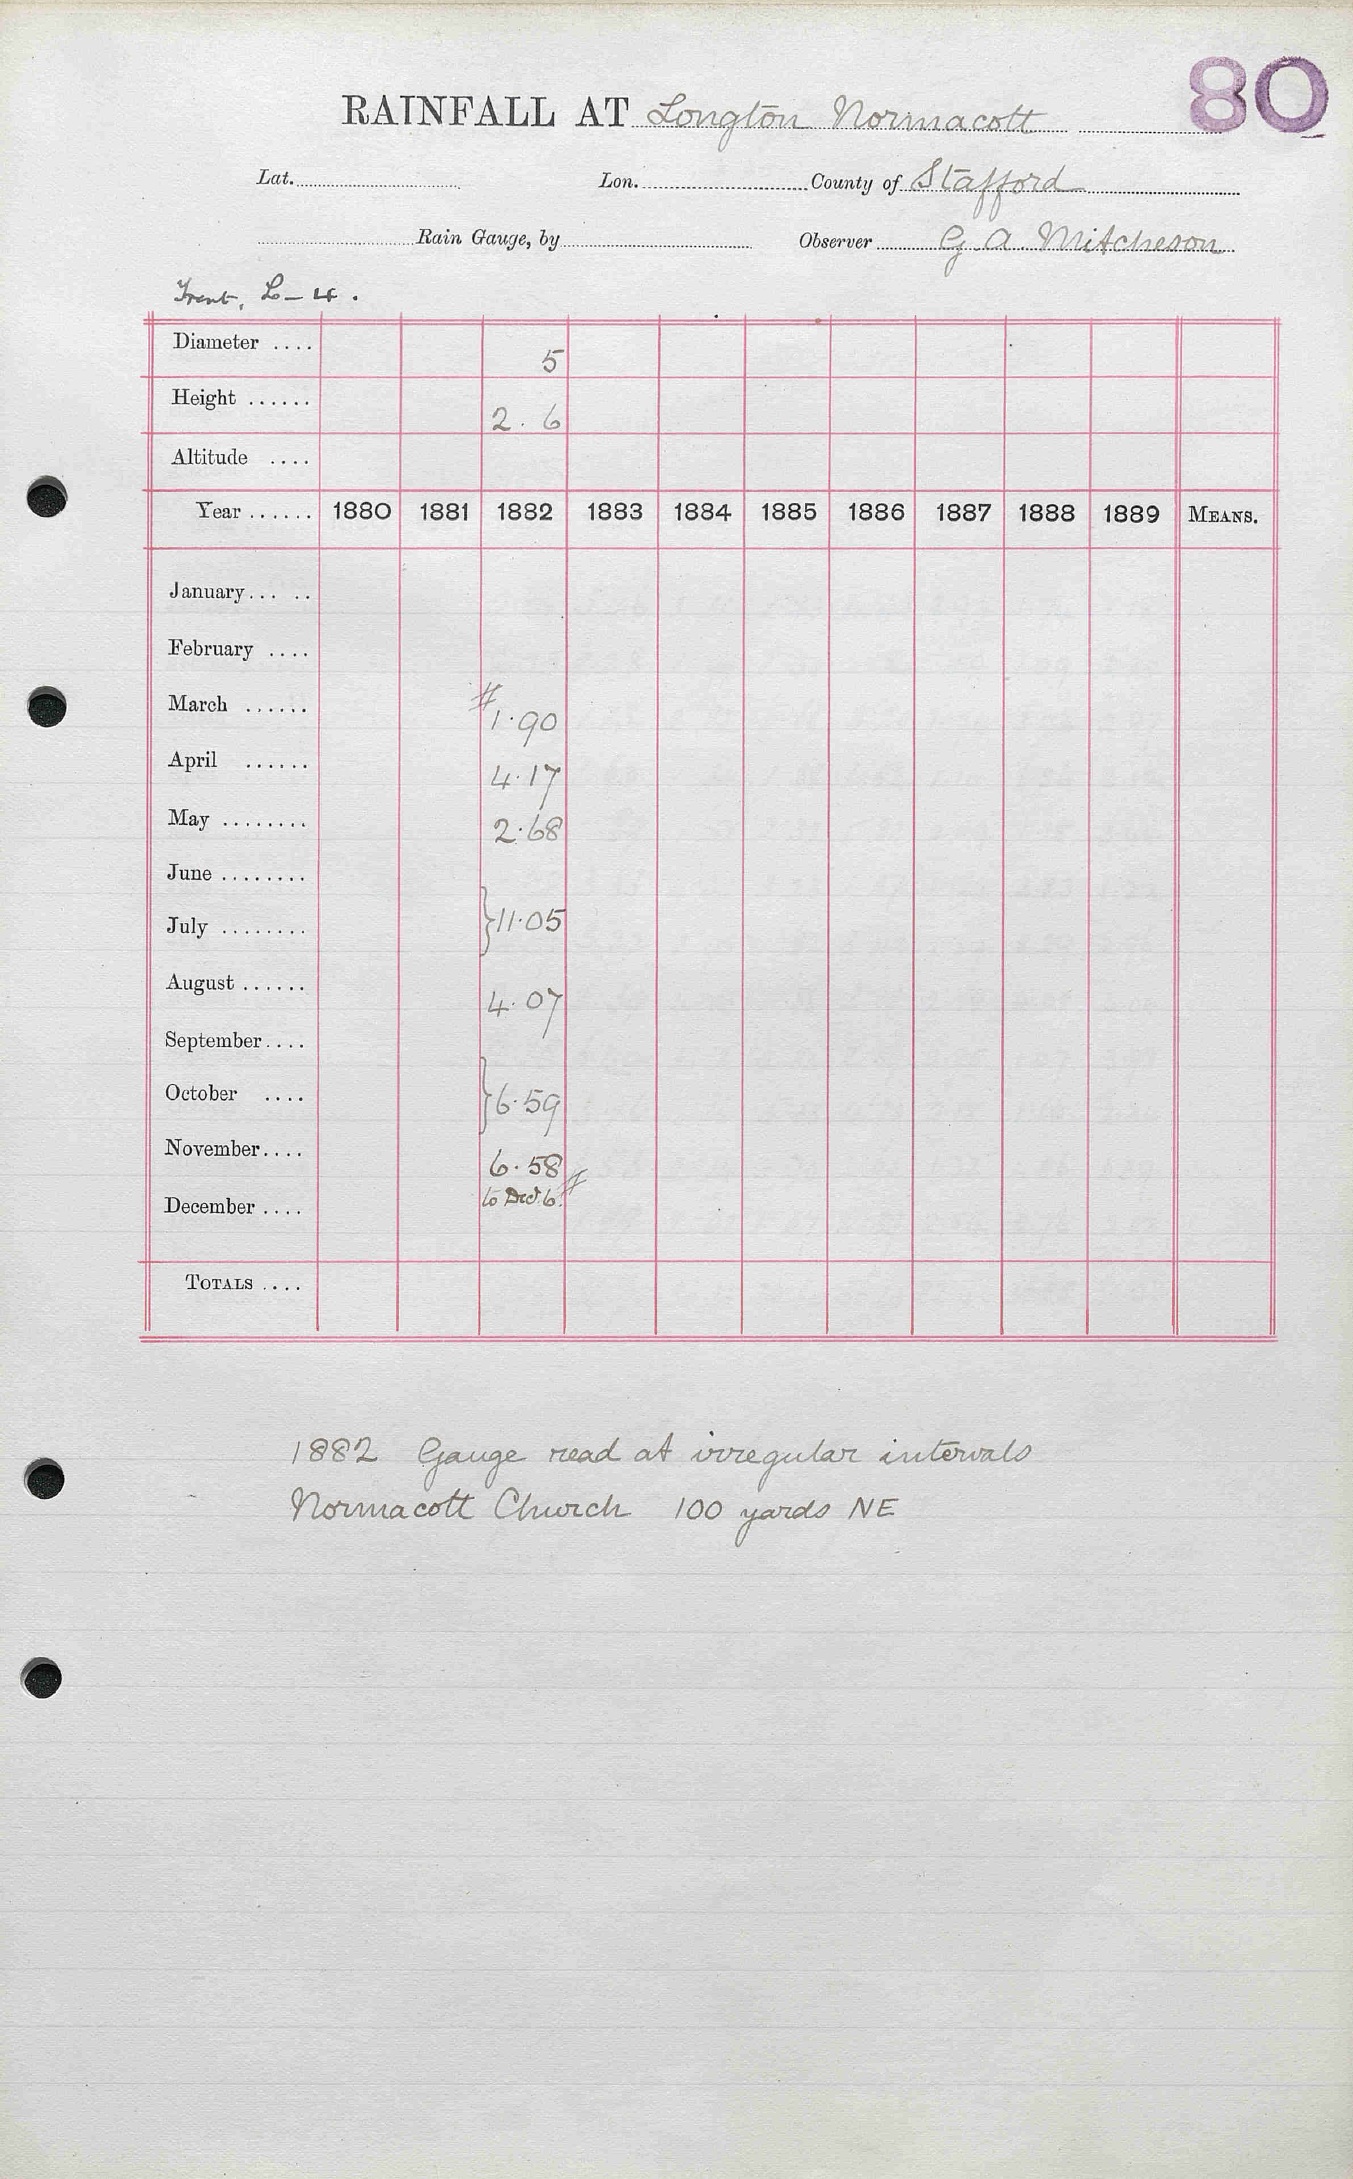 80
RAINFALL AT Longton Normacott
Lat. Lon. County of Stafford
Rain Gauge, by Observer G A Mitcheson
Trent, L–4.
Diameter .... 5
Height ...... 2. 6
Altitude ....
Year ...... 1880 1881 1882 1883 1884 1885 1886 1887 1888 1889 MEANS.
January... ..
February ....
March ...... # 1.90
April ...... 4.17
May ........ 2.68
June ........
July ........ } 11.05
August ...... 4.07
September....
October .... } 6.59
November.... 6.58
December .... to Dec. 6. #
TOTALS ....
1882 Gauge read at irregular intervals
Normacott Church 100 yards NE